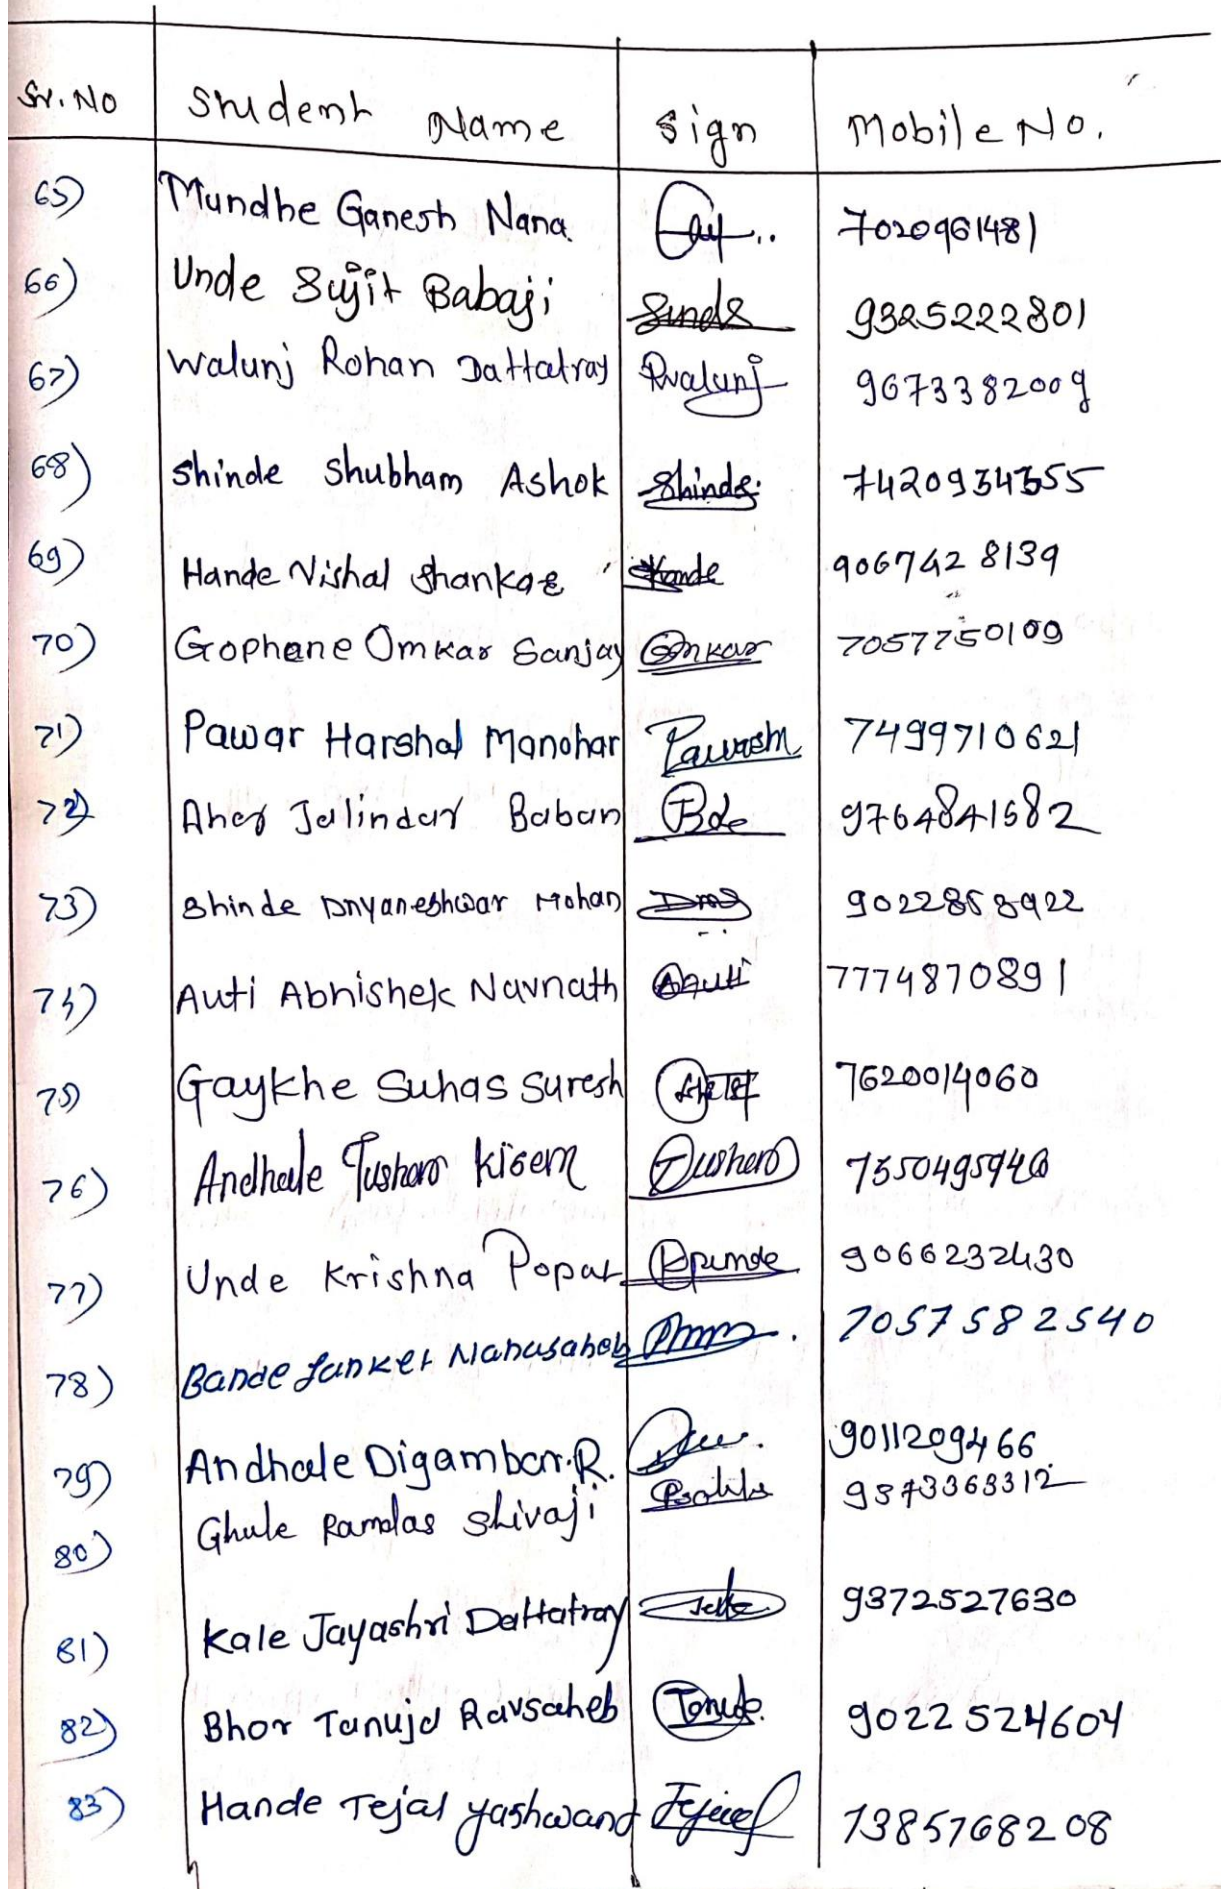 Sr. No Student Name Sign Mobile No.
65) Mundhe Ganesh Nana 7020961481
66) Unde Sujit Babaji 9325222801
67) Walunj Rohan Dattatray Rwalunj 9673382009
68) Shinde Shubham Ashok Shinde 7420934355
69) Hande Vishal Shankar Hande 9067428139
70) Gophane Omkar Sanjay Omkar 7057750109
71) Pawar Harshal Manohar 7499710621
72) Aher Jalindar Baban 9764841682
73) Shinde Dnyaneshwar Mohan 9022868922
74) Auti Abhishek Navnath AAuti 7774870891
75) Gaykhe Suhas Suresh 7620014060
76) Andhale Tushar Kisem Tushar
77) Unde Krishna Popat 9066232430
78) Bande Sanket Nanasaheb 7057582540
79) Andhale Digambar.R. 9011209466
80) Ghule Ramdas Shivaji 9373363312
81) Kale Jayashri Dattatray 9372527630
82) Bhor Tanuja Ravsaheb 9022524604
83) Hande Tejal Yashwant 7385768208